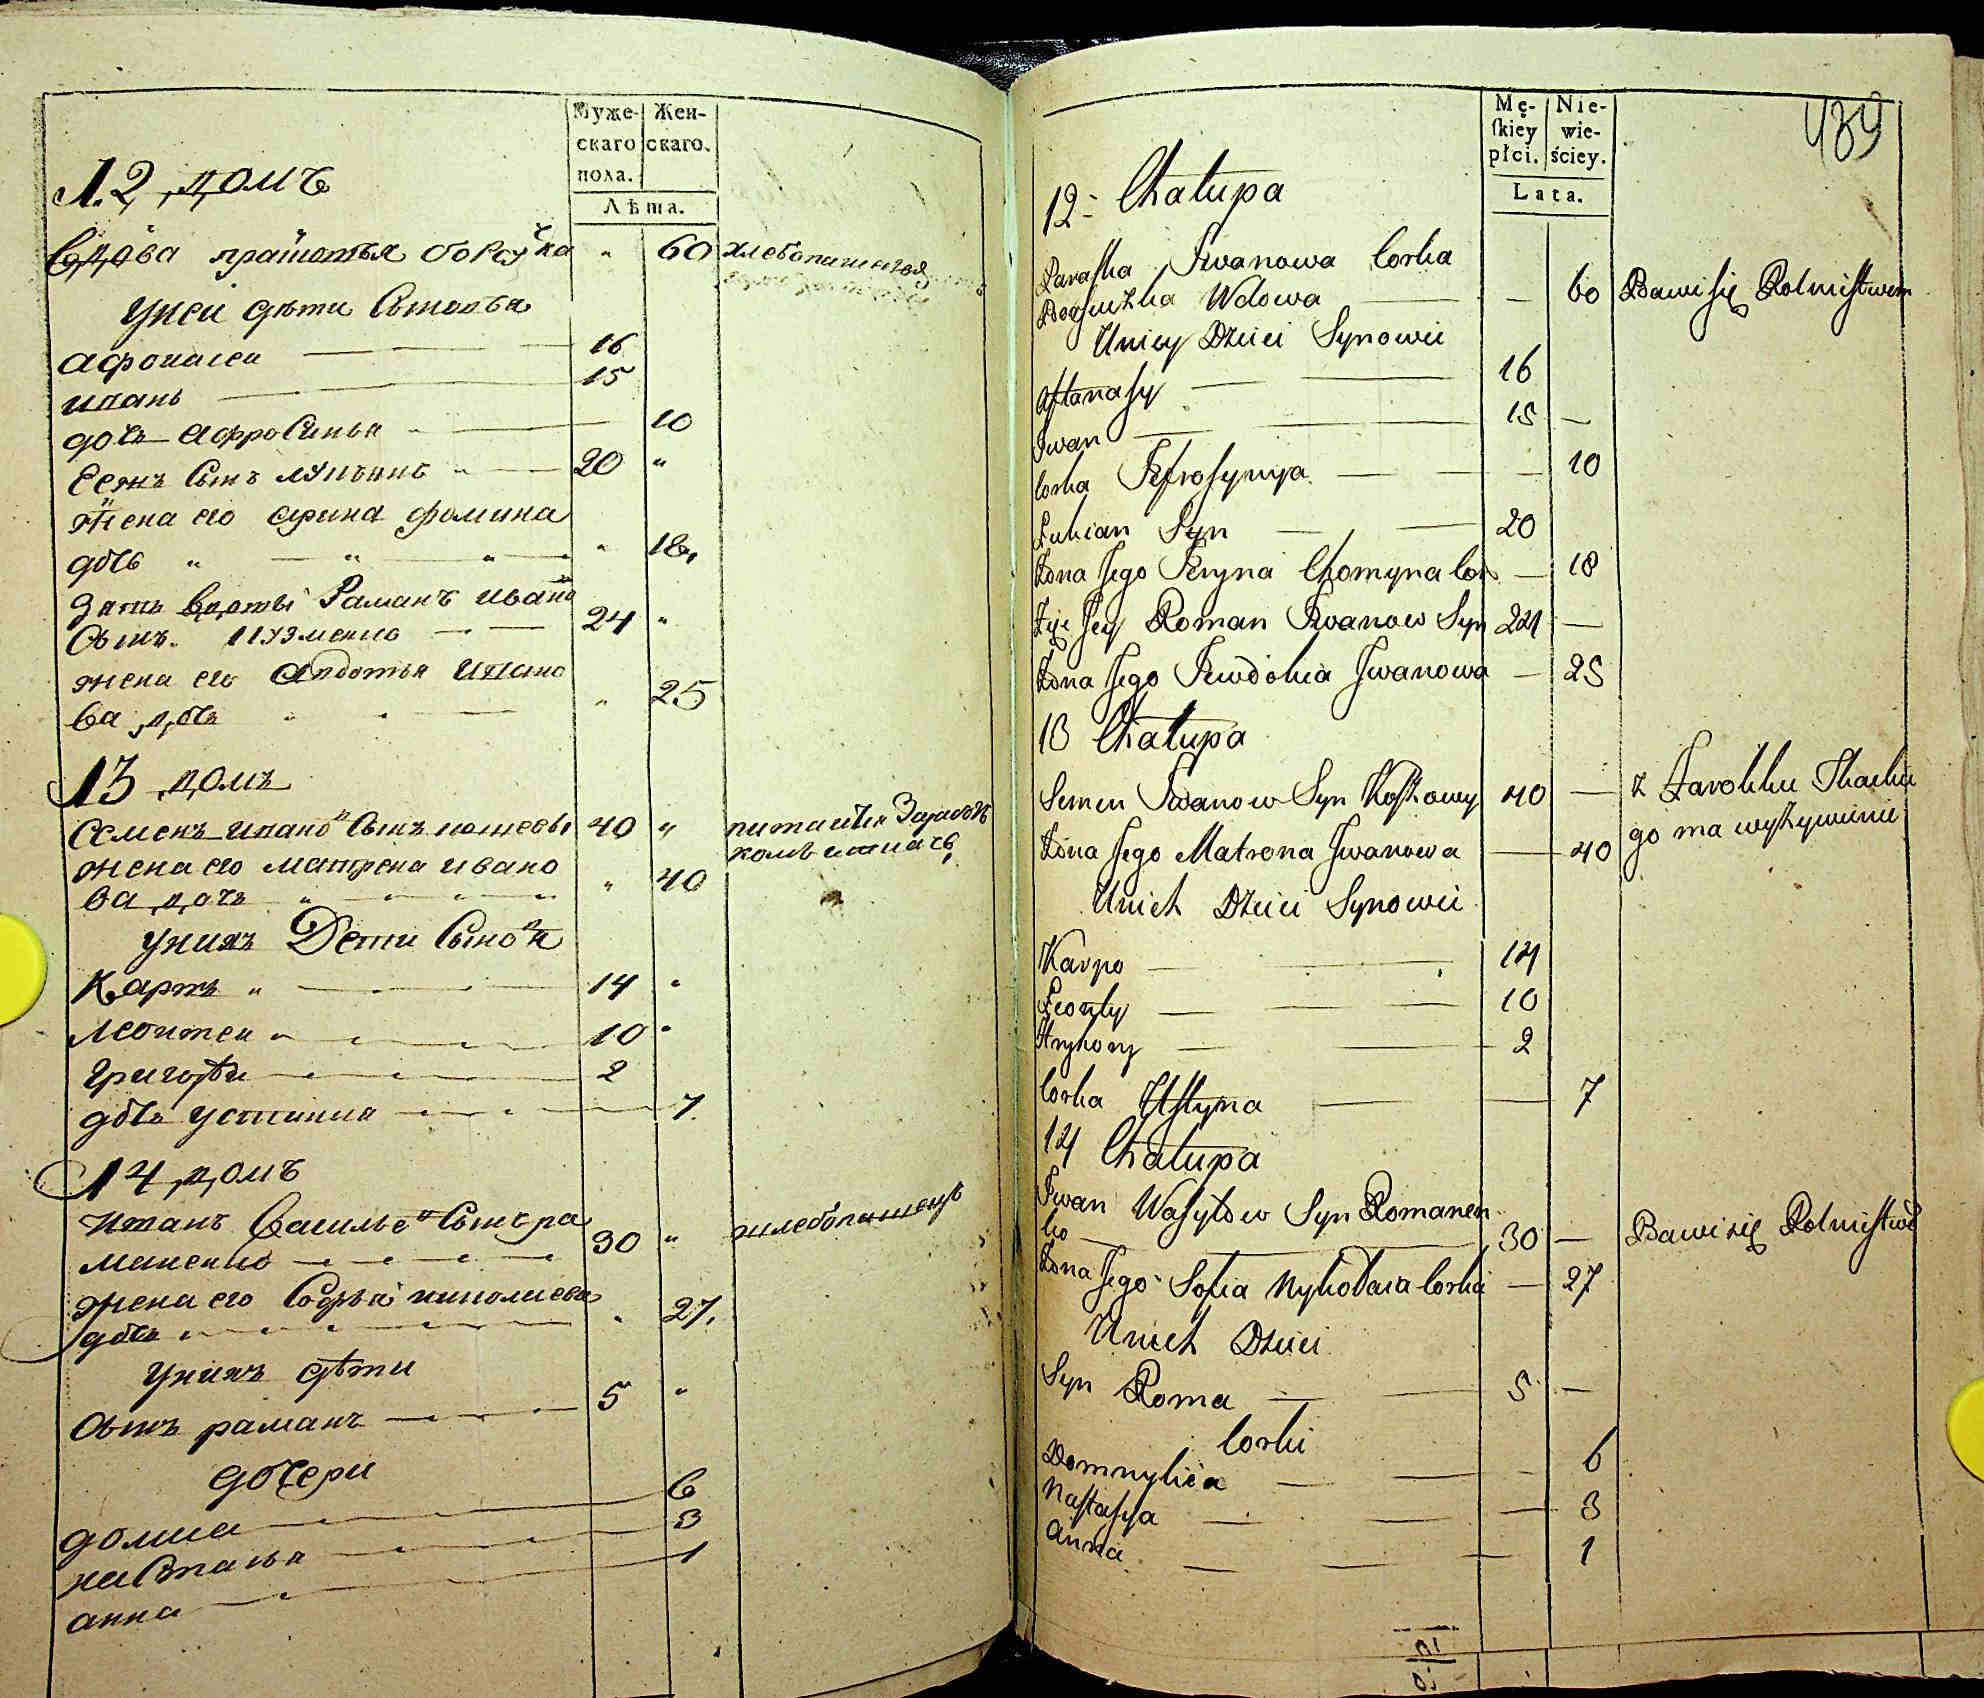 Муже-
скаго
пола.
Жен-
скаго.
Лѣта.
12 домъ
Вдова прасковья
60 хлебопашеством
У ней дѣти Сыновья
афонасеи 16
иванъ 15
дочь афросинья 10
Сынъ лукьянъ 20
жена его арина фомина
дочь 18
зять вдовы Раманъ ивано
Сынъ кузменко 24
жена его авдотья ивано
ва дочь 25
13 домъ
Семенъ ивано Сынъ 40 питаитца Заработ
комъ
жена его матрена ивано
ва дочь 40
У нихъ Дети Сынов
Карпъ 14
леонтеи 10
григореи 2
дочь устинна 7
14 домъ
иванъ Василье Сынъ ра
маненко 30 хлебопашец
жена его Софья николаева
дочь 27
У нихъ дѣти
Сынъ раманъ 5
дочери
домна 6
настасья 3
анна 1
439
Mę-
skiey
płci.
Nie-
wie-
ściey.
Lata.
12 Chałupa
Paraska Iwanowa Corka
Wdowa 60 Bawi się Rolnictwem
U niey Dzieci Synowie
Aftanasy 16
Iwan 15
Corka Jefrosynija 10
Łukian Syn 20
Żona Jego Jeryna Chomyna Cor 18
Zięć Jey Roman Iwanow Syn 24
Żona Jego Jewdokia Iwanowa 25
13 Chałupa
Semen Iwanow Syn Koszowy 40 z Zarobku Tkackie
go ma wyżywienie
Żona Jego Matrona Iwanowa 40
U nich Dzieci Synowie
Karpo 14
Leonty 10
Hryhory 2
Corka Ustyna 7
14 Chałupa
Iwan Wasylow Syn Romanen
ko 30 Bawi się Rolnictwe
Żona Jego Sofia Mykołaia Corka 27
U nich Dzieci
Syn Roma 5
Corki
Domnykia 6
Nastasya 3
Anna 1